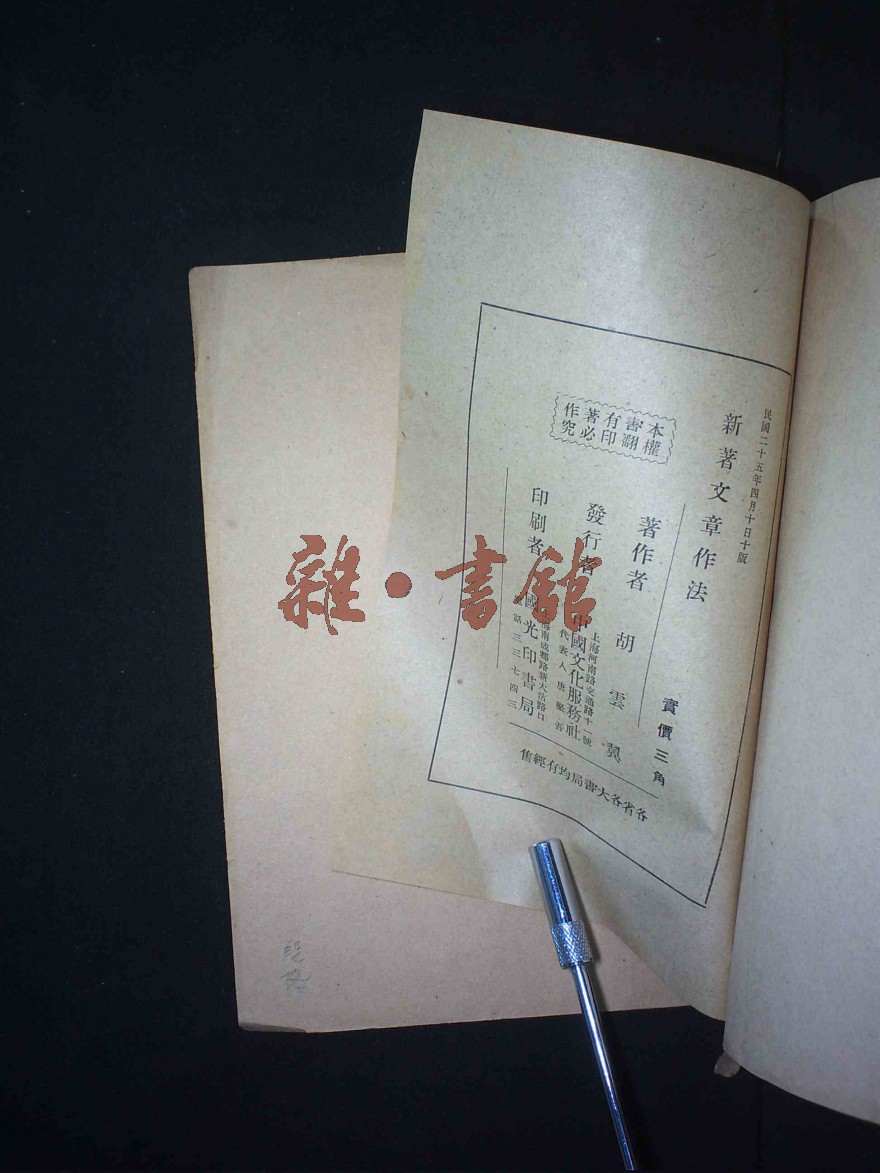 民國二十五年四月十日十版
新著文章作法
實價三角
著作者 胡雲翼
發行者 中國文化服務社
上海河南路交通路十一號
代表人唐
印刷者 國光印書局
南成都路新大沽路口
話三三七四三
本書有著作
權翻印必究
各省各大書局均有經售
雜·書館